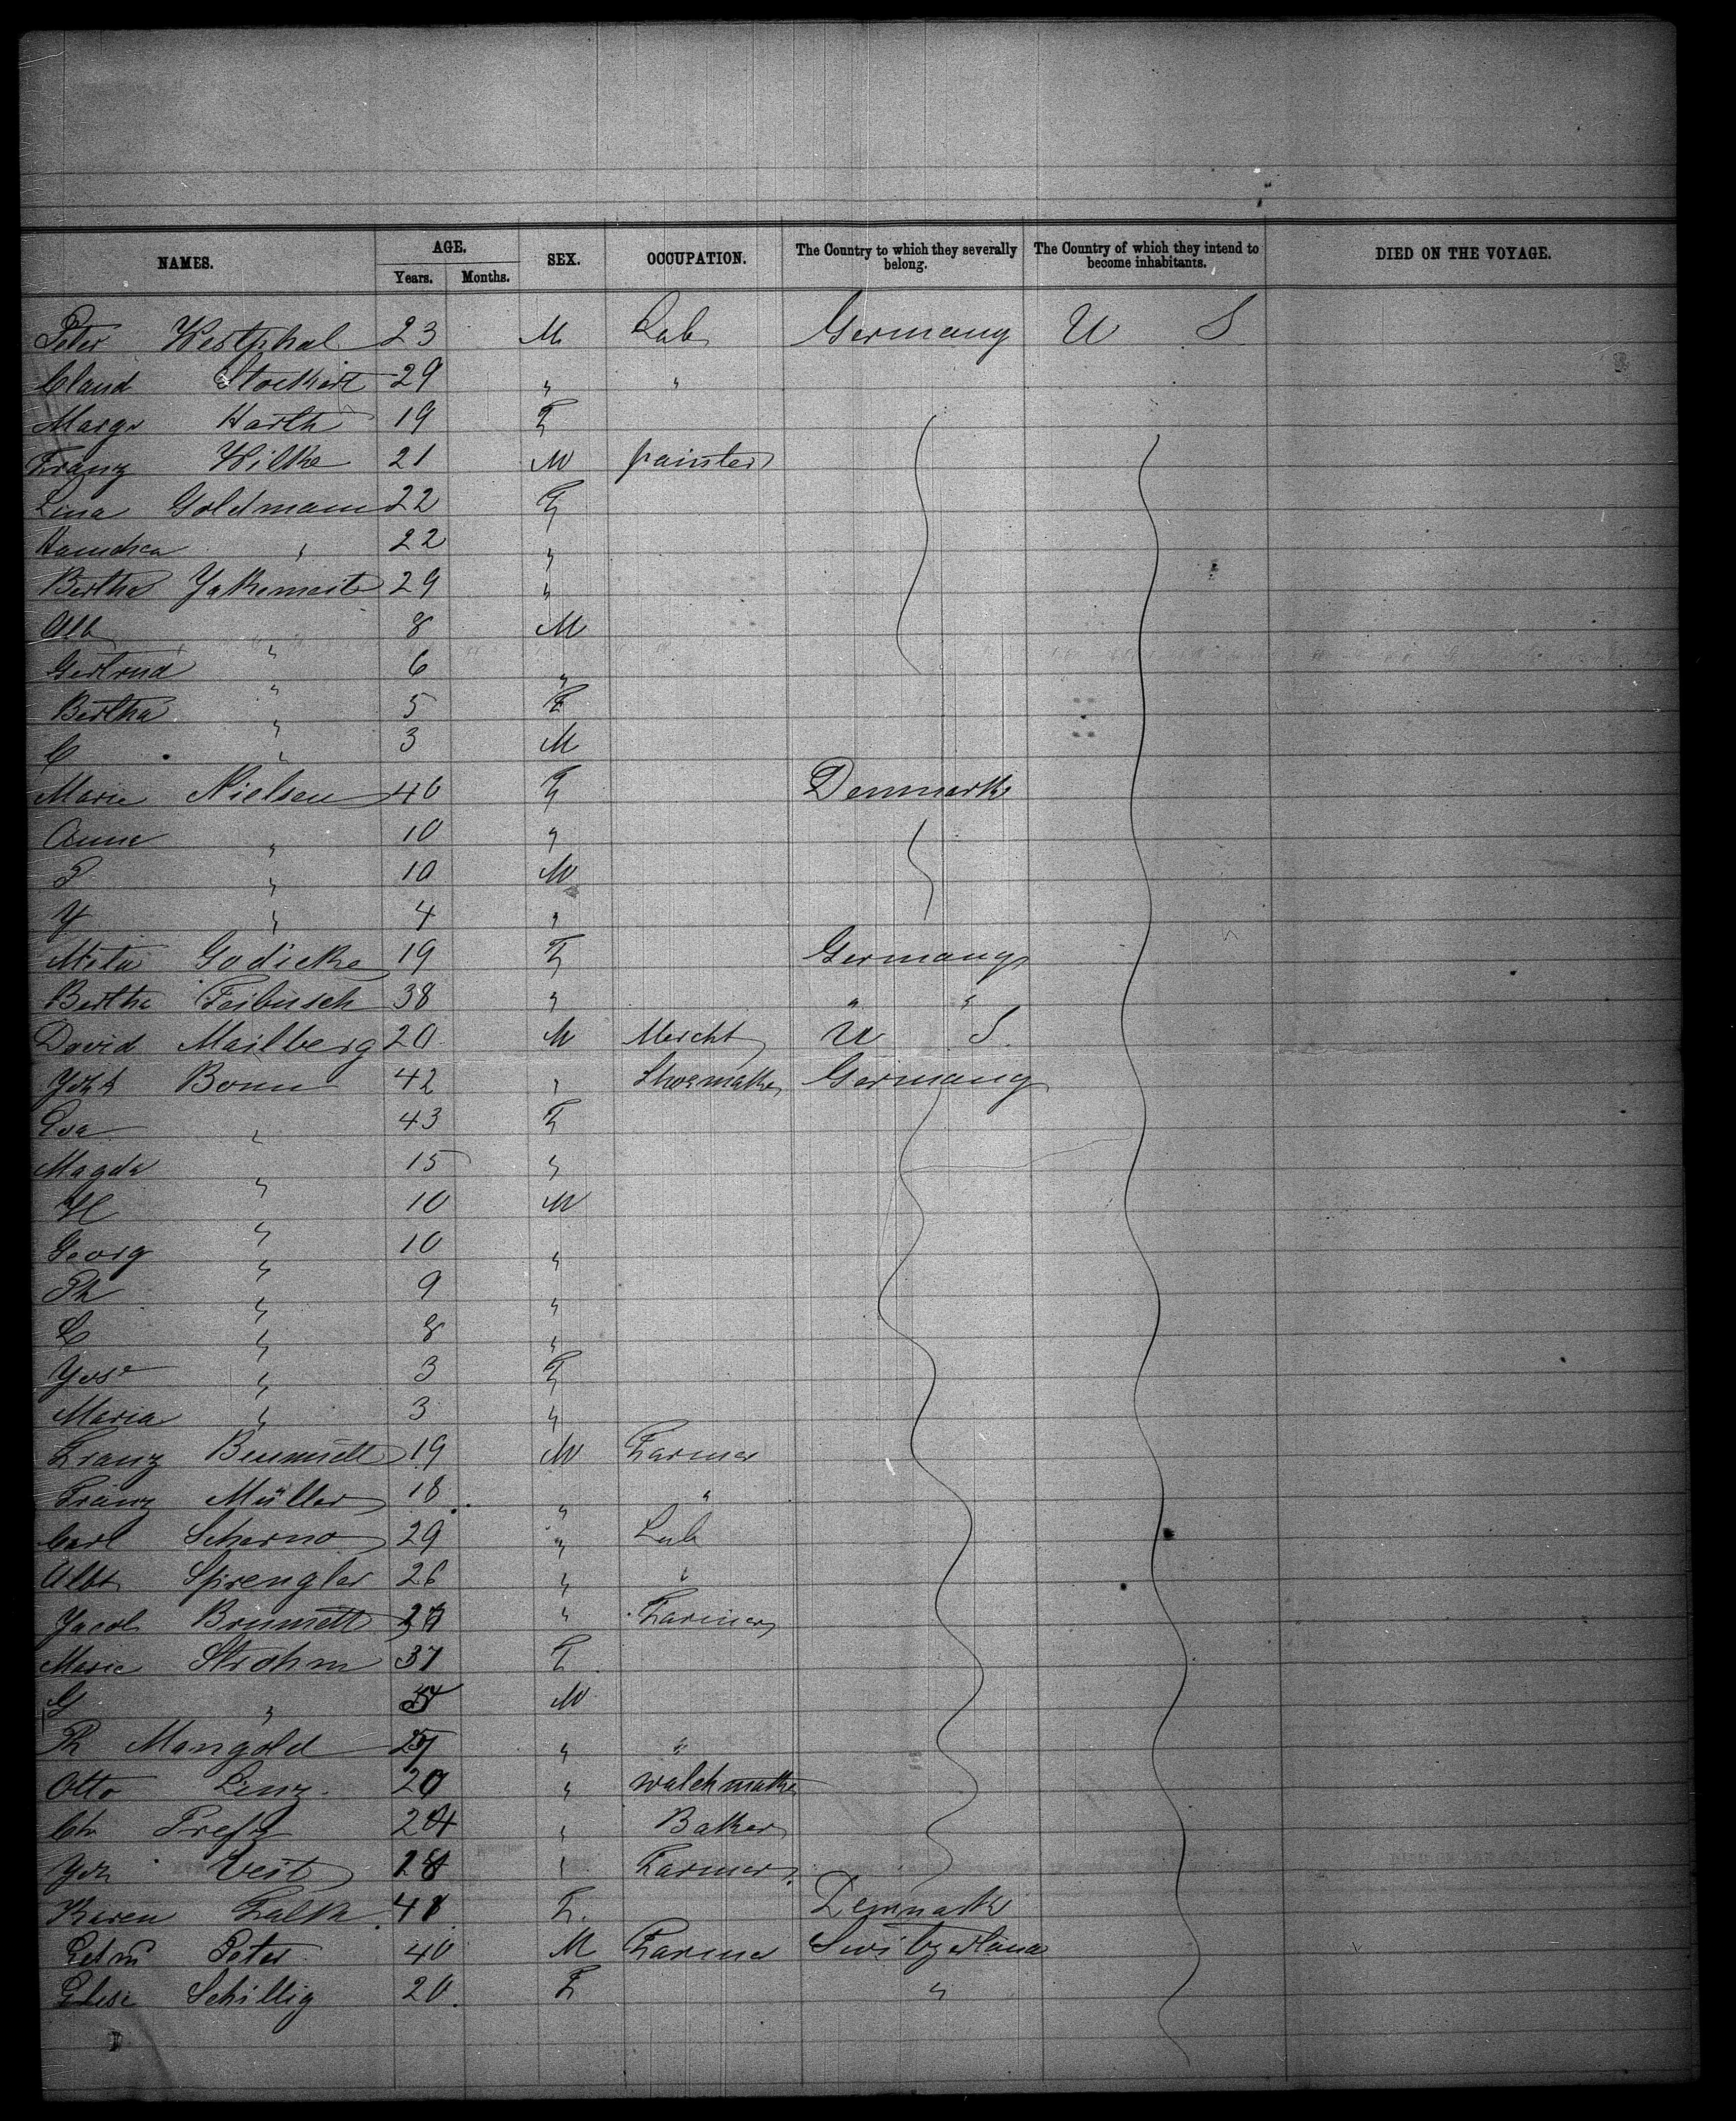 NAMES. AGE. Years. Months. SEX. OCCUPATION. The Country to which they severally belong. The Country of which they intend to become inhabitants. DIED ON THE VOYAGE.
Peter Westphal 23 M Lab Germany U S
Claud Stockert 29 " "
Margr Harth 19 F
Franz Wilke 21 M painter
Lina Goldmann 22 F
" 22 "
Bertha 29 "
Alb " 8 M
Gertrud " 6 "
Bertha " 5 F
C " 3 M
Marie Nielsen 40 F Denmark
Anne " 10 "
P " 10 M
Y " 4 "
Meta Godicke 19 F Germany
Bertha Feibusch 38 " " "
David Mailberg 20 M Mercht U S.
Joh Bonn 42 " Shoemaker Germany
Eva " 43 F
Magda " 15 "
H " 10 M
Georg " 10 "
Ph " 9 "
L " 8 "
Jose " 3 F
Maria " 3 "
Franz 19 M Farmer
Franz Müller 18 " "
Carl Scherno 29 " Lab
Albt Sprengler 26 " "
Jacob " Farmer
Marie Strohm 37 F
G " M
Ph Mangold " "
Otto Lenz 20 " watchmaker
Ch 24 " Baker
Joh Veit " Farmer
Karen Falk 41 F. Denmark
Peter 40 M Farmer Switzerland
Elise Schillig 20 F "